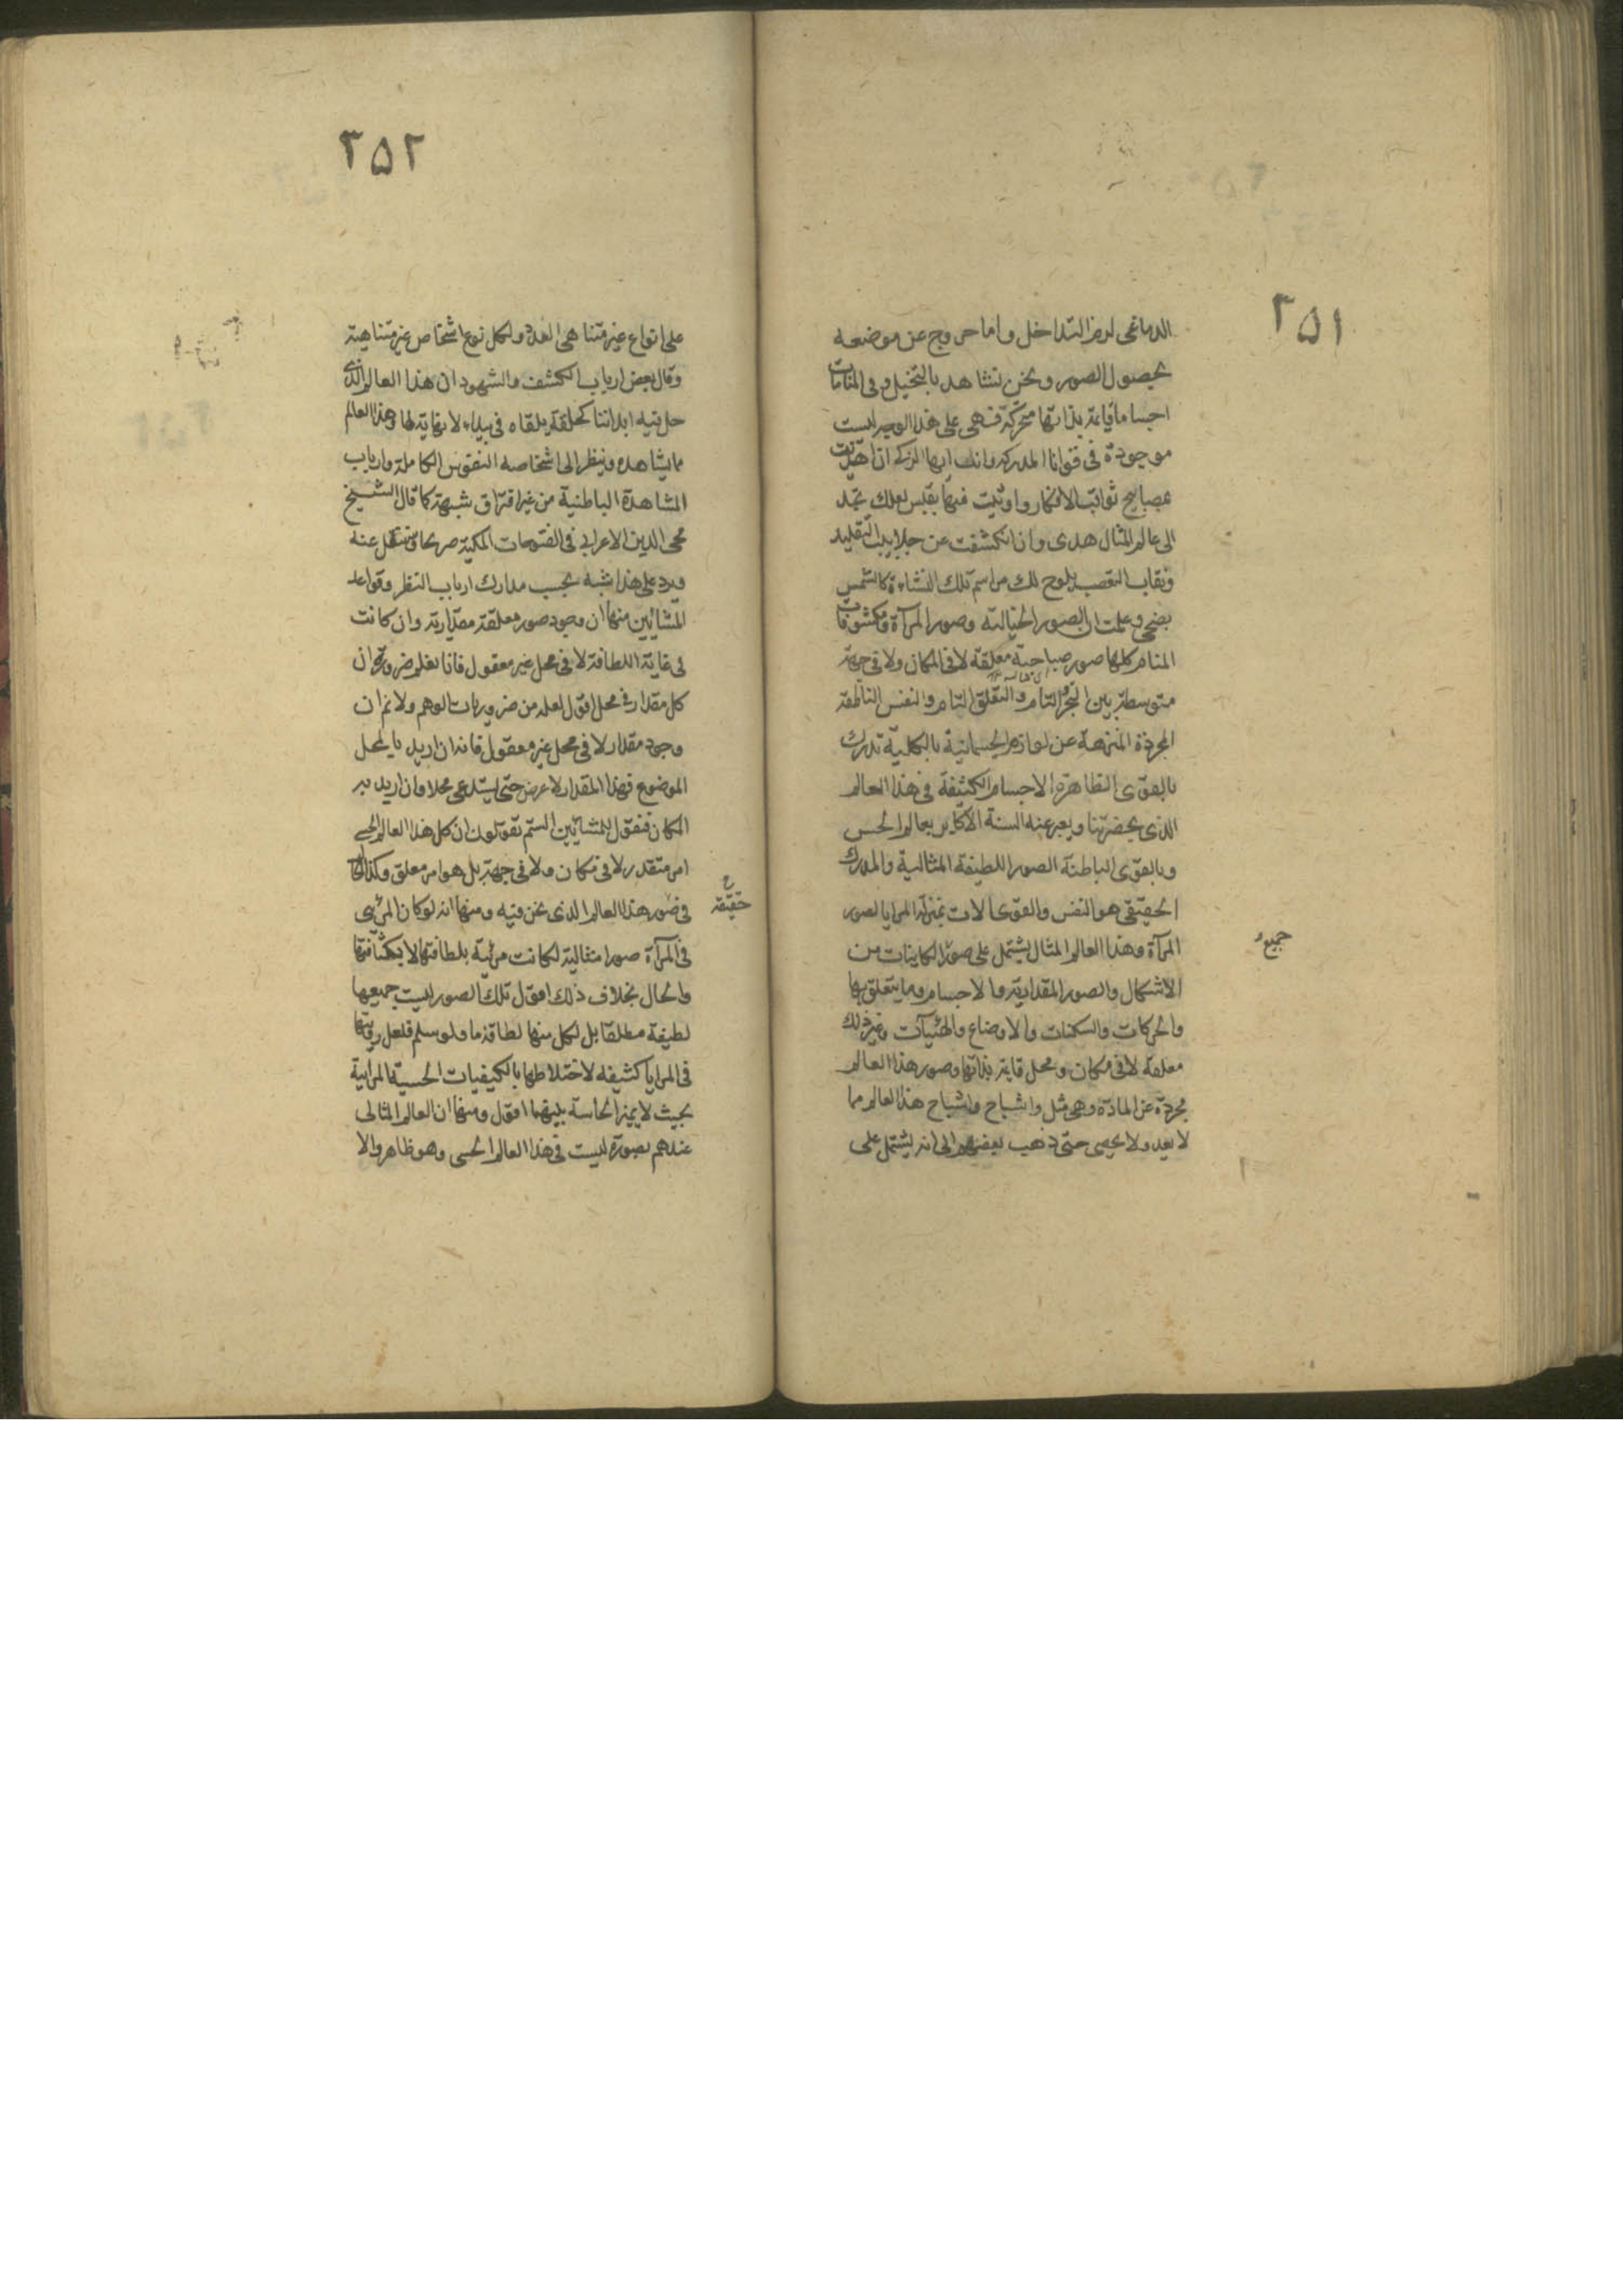 ٣٥١
الدماغى لزم التداخل واما خروج عن موضعه
بحصول الصور ونحن نشاهد بالتخيل وفى المنامات
اجساما قايمة بذاتها متحركة فهى على هذا الوجه ليست
موجودة فى قوانا المدركة وانك ايها الزكى ان اهتديت
بمصابيح ثواقب الافكار واوتيت منها بقبس لعلك تجد
الى عالم المثال هدى وان انكشفت عن جلابيب التقليد
ونقاب التعصب يلوح لك مراسم تلك النشاءة كالشمس
بضحى وعلمت ان الصور الخيالية وصور المرآة ومكشوفات
المنام كلها صور صباحية معلقة لا فى المكان ولا فى جهة
متوسطة بين التجرد التام والتعلق التام والنفس الناطقة
المجردة المنزهة عن لوازم الجسمانية بالكلية تدرك
بالقوى الظاهرة الاجسام الكثيفة فى هذا العالم
الذى بحضرتنا ويعبر عنه السنة الاكابر بعالم الحس
وبالقوى الباطنة الصور اللطيفة المثالية والمدرك
الحقيقى هو النفس والقوى الات بمنزلة المرايا لصور
المرآة وهذا العالم المثال يشتمل على صور الكاينات من
جميع
الاشكال والصور المقدارية والاجسام وما يتعلق بها
والحركات والسكنات والاوضاع والهئيآت وغير ذلك
معلقة لا فى مكان ومحل قايمة بذاتها وصور هذا العالم
مجردة عن المادة وهى مثل واشباح واشباح هذا العالم مما
لا يعد ولا يحصى حتى ذهب بعضهم الى انه يشتمل على
٣٥٢
على انواع غير متناهى العدة ولكل نوع اشخاص غير متناهية
وقال بعض ارباب الكشف والشهود ان هذا العالم الذى
حل فيه ابداننا كحلقة ملقاه فى بيداء لا نهاية لها وهذا العالم
مما يشاهده وينظر الى اشخاصه النفوس الكاملة وارباب
المشاهدة الباطنية من غير اقتراق شبهة كما قال الشيخ
محى الدين الاعرابى فى الفتوحات المكية صريحا عنه
ويرد على هذا شبه بحسب مدارك ارباب النظر وقواعد
المشائين منها ان وجود صور معلقة مقدارية وان كانت
فى غاية اللطافة لا فى محل غير معقول فانا نعلم ضرورة ان
كل مقدار فى محل اقول لعله من ضروريات الوهم ولا نم ان
وجود مقدار لا فى محل غير معقول فانه ان اريد بالمحل
الموضوع فهذا المقدار لا عرض حتى يستدعى محلا وان اريد به
المكان فنقول للمشائين الستم تقولون ان كل هذا العالم الحسى
امر متقدر لا فى مكان ولا فى جهة بل هو امر معلق وكذلك
حقيقة
فى صور هذا العالم الذى نحن فيه ومنها انه لو كان المرئى
فى المرآة صورا مثالية لكانت مرئية بلطافتها لا بكثافتها
والحال بخلاف ذلك اقول تلك الصور ليست جميعها
لطيفة مطلقا بل لكل منها لطافة ما ولو سلم فلعل رؤيتها
فى المرايا كثيفه لاختلاطها بالكيفيات الحسية المرايية
بحيث لا يميز الحاسة بينهما اقول ومنها ان العالم المثالى
عندهم بصورة ليست فى هذا العالم الحسى وهو ظاهر والا